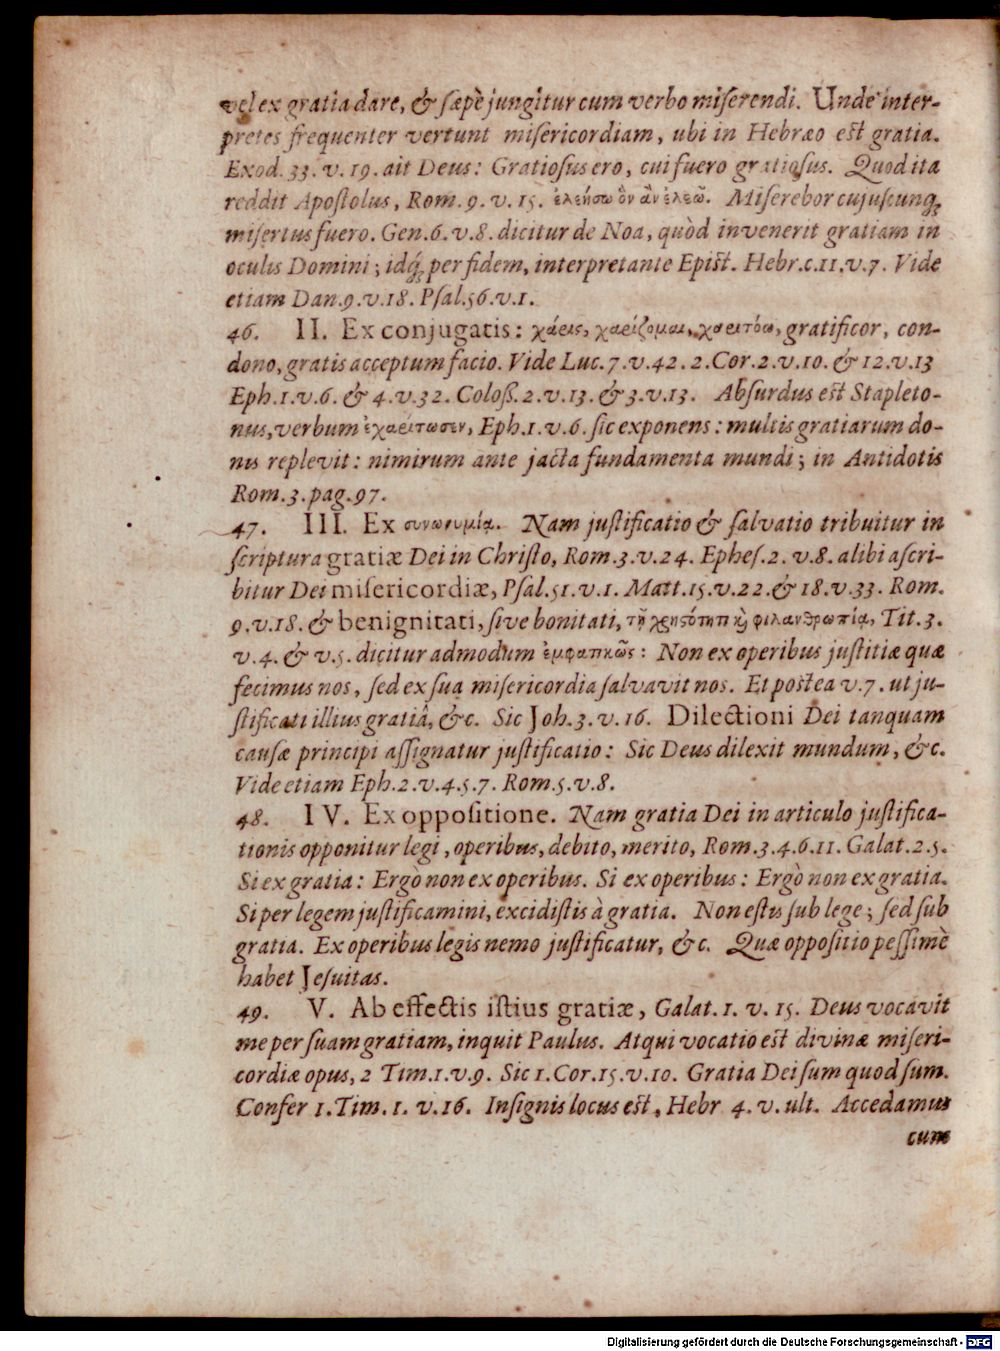 vel ex gratia dare, & sæpè jungitur cum verbo miserendi. Unde inter-
pretes frequenter vertunt misericordiam, ubi in Hebræo est gratia.
Exod. 33. v. 19. ait Deus: Gratiosus ero, cui fuero gratiosus. Quod ita
reddit Apostolus, Rom. 9. v. 15. ἐλεήσω ὃν ἂν ἐλεῶ. Miserebor cujuscunq;
misertus fuero. Gen. 6. v. 8. dicitur de Noa, quòd invenerit gratiam in
oculis Domini; idq; per fidem, interpretante Epist. Hebr. c. 11. v. 7. Vide
etiam Dan. 9. v. 18. Psal. 56. v. 1.
46. II. Ex conjugatis: χάρις, χαρίζομαι, χαριτόω, gratificor, con-
dono, gratis acceptum facio. Vide Luc. 7. v. 42. 2. Cor. 2. v. 10. & 12. v. 13
Eph. 1. v. 6. & 4. v. 32. Coloß. 2. v. 13. & 3. v. 13. Absurdus est Stapleto-
nus, verbum ἐχαρίτωσεν, Eph. 1. v. 6. sic exponens: multis gratiarum do-
nis replevit: nimirum ante jacta fundamenta mundi; in Antidotis
Rom. 3. pag. 97.
47. III. Ex συνωνυμίᾳ. Nam justificatio & salvatio tribuitur in
scriptura gratiæ Dei in Christo, Rom. 3. v. 24. Ephes. 2. v. 8. alibi ascri-
bitur Dei misericordiæ, Psal. 51. v. 1. Matt. 15. v. 22. & 18. v. 33. Rom.
9. v. 18. & benignitati, sive bonitati, τῇ χρηστότητι καὶ φιλανθρωπίᾳ, Tit. 3.
v. 4. & v. 5. dicitur admodum ἐμφατικῶς: Non ex operibus justitiæ quæ
fecimus nos, sed ex sua misericordia salvavit nos. Et postea v. 7. ut ju-
stificati illius gratiâ, &c. Sic Joh. 3. v. 16. Dilectioni Dei tanquam
causæ principi assignatur justificatio: Sic Deus dilexit mundum, &c.
Vide etiam Eph. 2. v. 4. 5. 7. Rom. 5. v. 8.
48. IV. Ex oppositione. Nam gratia Dei in articulo justifica-
tionis opponitur legi, operibus, debito, merito, Rom. 3. 4. 6. 11. Galat. 2. 5.
Si ex gratia: Ergò non ex operibus. Si ex operibus: Ergò non ex gratia.
Si per legem justificamini, excidistis à gratia. Non estis sub lege; sed sub
gratia. Ex operibus legis nemo justificatur, &c. Quæ oppositio pessimè
habet Jesuitas.
49. V. Ab effectis istius gratiæ, Galat. 1. v. 15. Deus vocavit
me per suam gratiam, inquit Paulus. Atqui vocatio est divinæ miseri-
cordiæ opus, 2 Tim. 1. v. 9. Sic 1. Cor. 15. v. 10. Gratia Dei sum quod sum.
Confer 1. Tim. 1. v. 16. Insignis locus est, Hebr 4. v. ult. Accedamus
cum
Digitalisierung gefördert durch die Deutsche Forschungsgemeinschaft - DFG